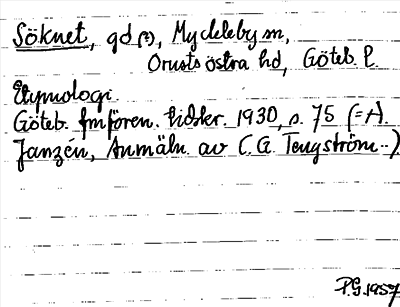 Söknet, gd (?), Myckleby sn,
Orusts östra hd, Göteb. l.
Etymologi.
Göteb. fmfören. tidskr. 1930, s. 75 (= A.
Janzén, Anmäln. av C. G. Tengström..)
P.G. 1957